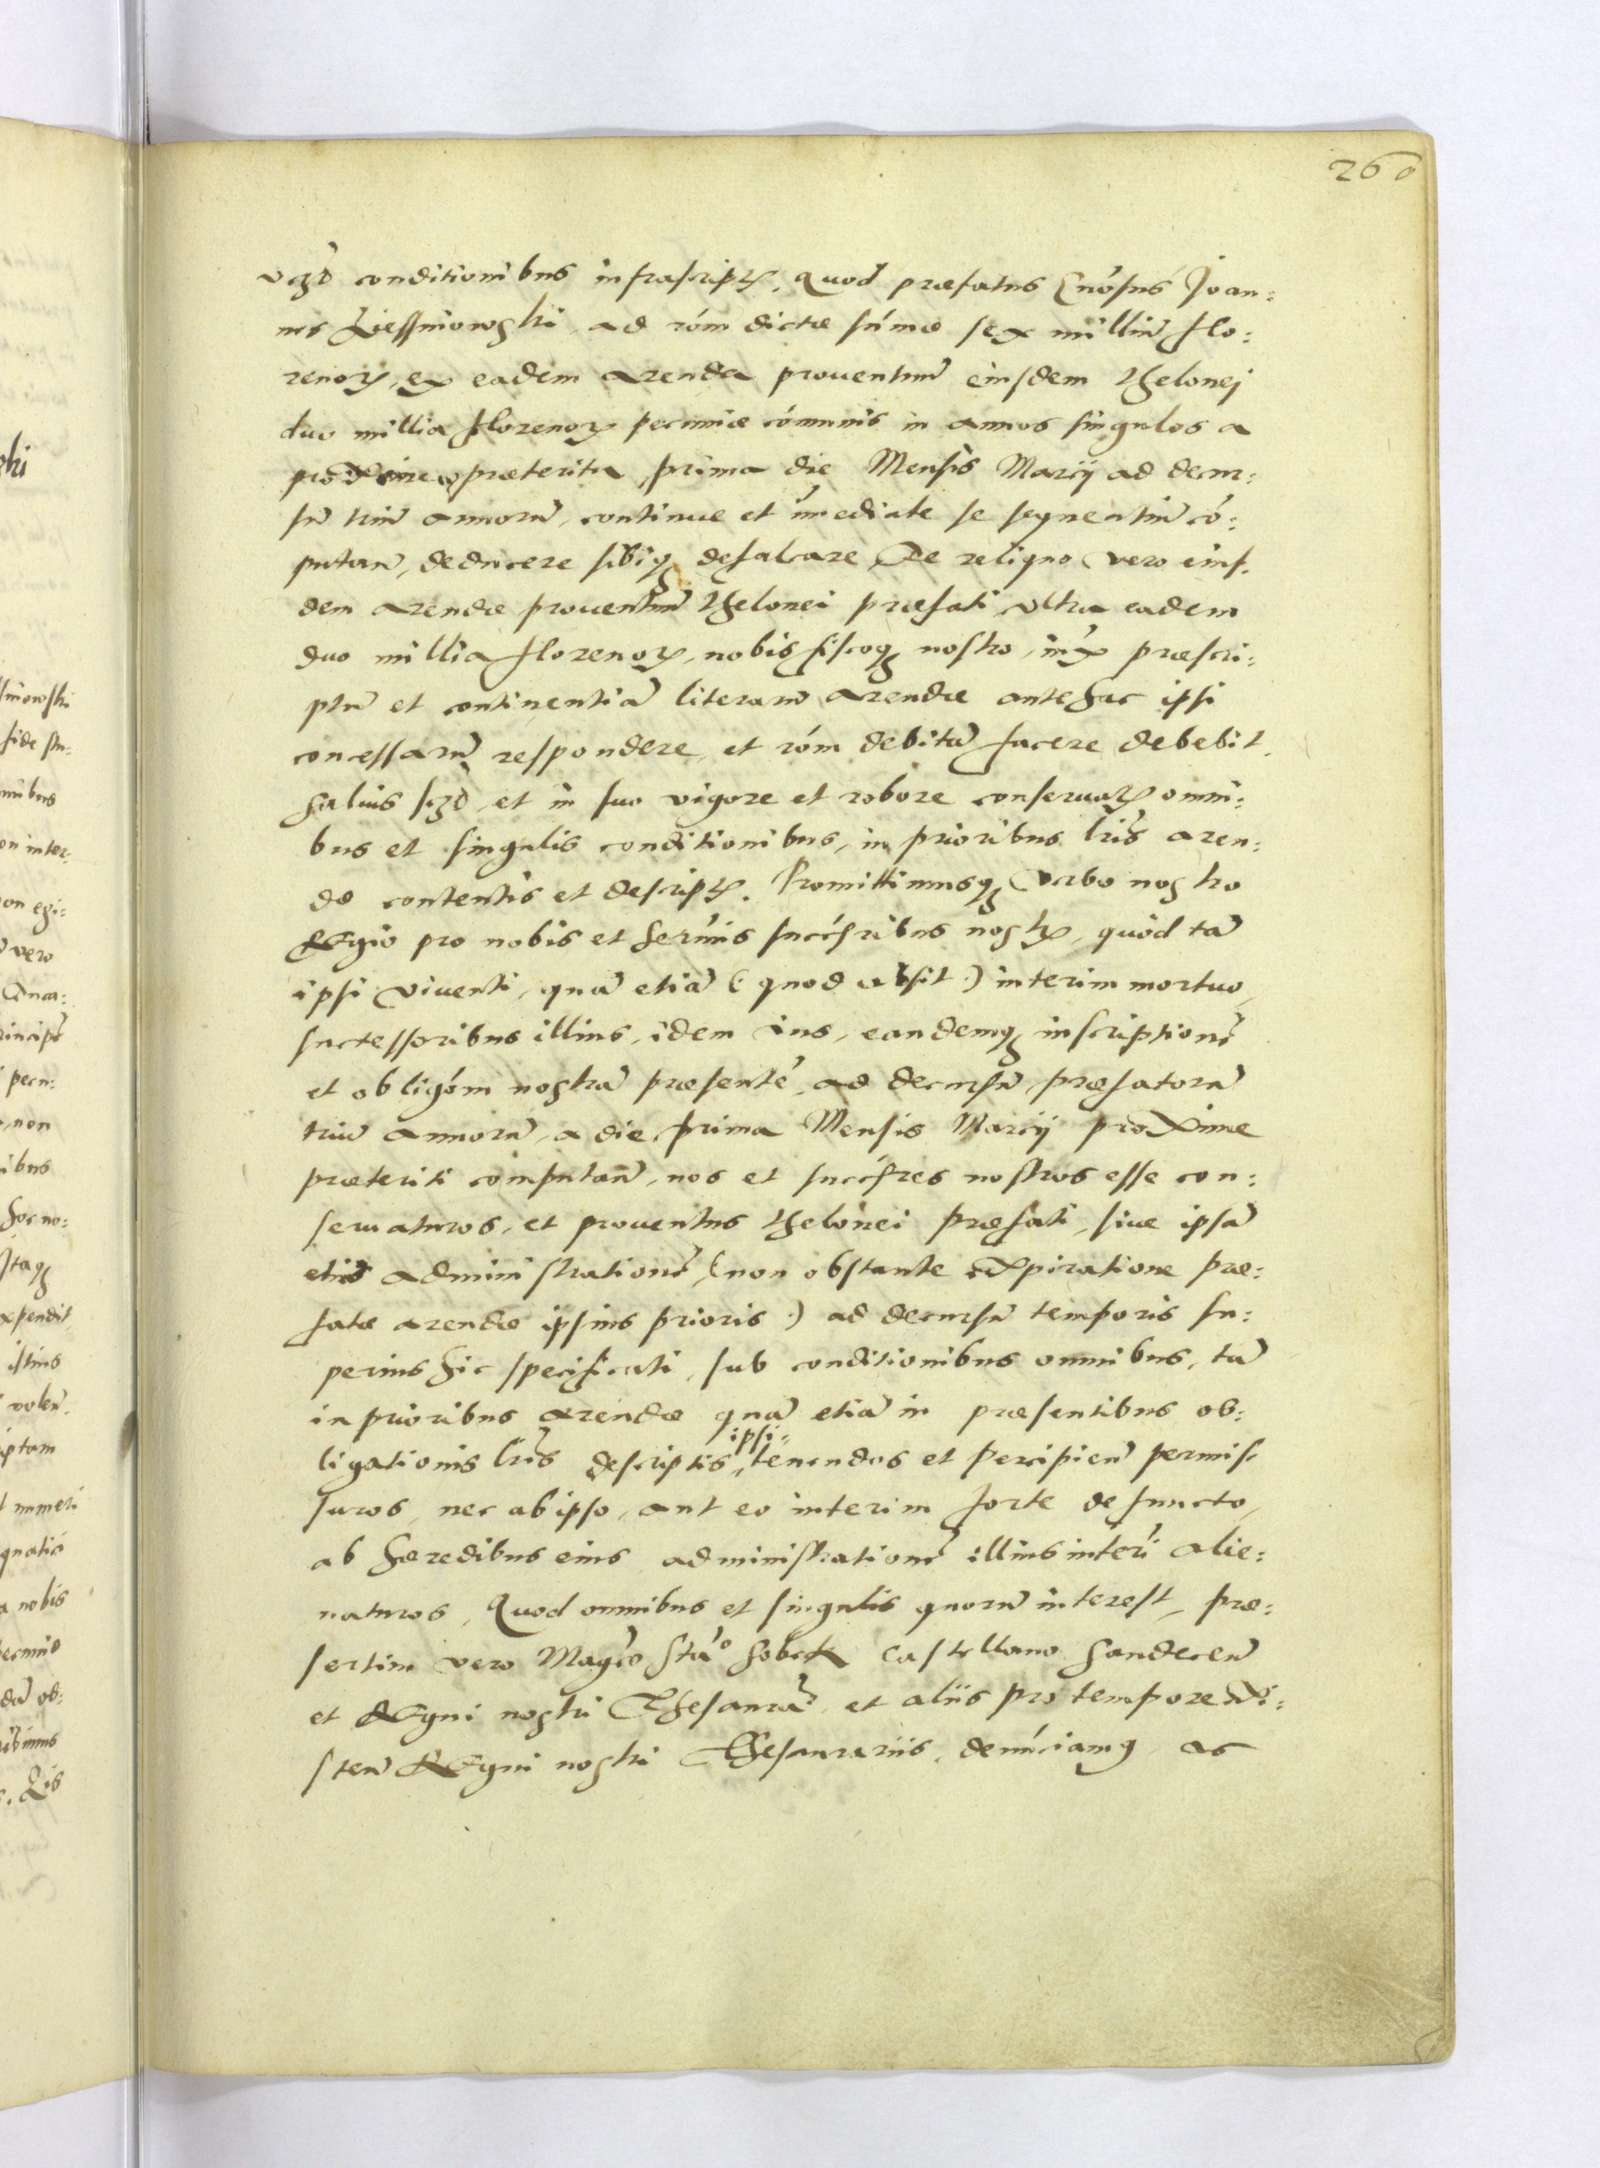 260
vczt conditionibus infrascript., Quod præfatus Gn̄osus Joan:
nes Liessniowski ad rōm dictæ sūmæ sex milliū flo:
renor. ex eadem arenda proventuū eiusdem thelonej
duo millia florenor. pecuniæ cōmunis in annos singulos a
proxime præterita prima die Mensis Marcij ad decur:
sū triū annorū, continue et īmediate se sequentiū cō:
putan̄, deducere sibiq3 defalcare, De reliquo vero eius:
dem arendæ proventuū thelonei præfati ultra eadem
duo millia florenor., nobis fiscoq3 nostro, iux̄ præscri:
ptū et continentiā literarū arendæ antehac ipsi
concessarū respondere et rōm debitā facere debebit.
Salvis sczt et in suo vigore et robore conservat. omni:
bus et singulis conditionibus, in prioribus lr̄is aren:
dæ contentis et descript. Promittimusq3 Verbo nostro
Regio pro nobis et Serm̄is Succ̄ribus nostr., quòd tā
ipsi viventi, quā etiā (: quod absit :) interim mortuo,
successoribus illius, idem ius, eandemq3 inscriptionē
et obligōm nostrā præsentē ad decursū præfatorū
triū annorū, a die prima Mensis Marcij proxime
præteriti computan̄, nos et succ̄res nostros esse con:
servaturos, et proventus thelonei præfati, sive ipsā
eius administrationē, (: non obstante expiratione præ:
fatæ arendæ ipsius prioris :) ad decursū temporis su:
perius hic specificati, sub conditionibus omnibus, tā
in prioribus arendæ quā etiā in præsentibus ob:
ligationis lr̄is descriptis, ipsi: tenendos et percipien̄ permis:
suros, nec ab ipso, aut eo interim forte defuncto,
ab hæredibus eius administrationē illius interī alie:
naturos, Quod omnibus et singulis quorū interest, præ:
sertim vero Magc̄o Stāo Sobek Castellano Sandecen̄
et Regni nostri Thesaurā. et aliis pro tempore exi:
sten̄ Regni nostri Thesaurariis, denūciamq ac